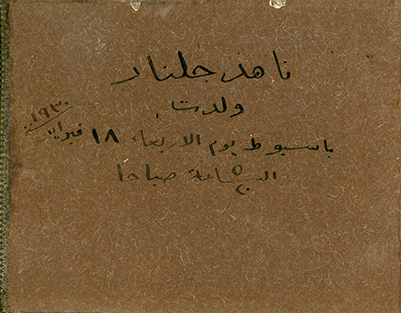 ناهد جلنار
ولدت
باسيوط يوم الاربعاء ١٨ فبراير ١٩٣٠
الساعة صباحا